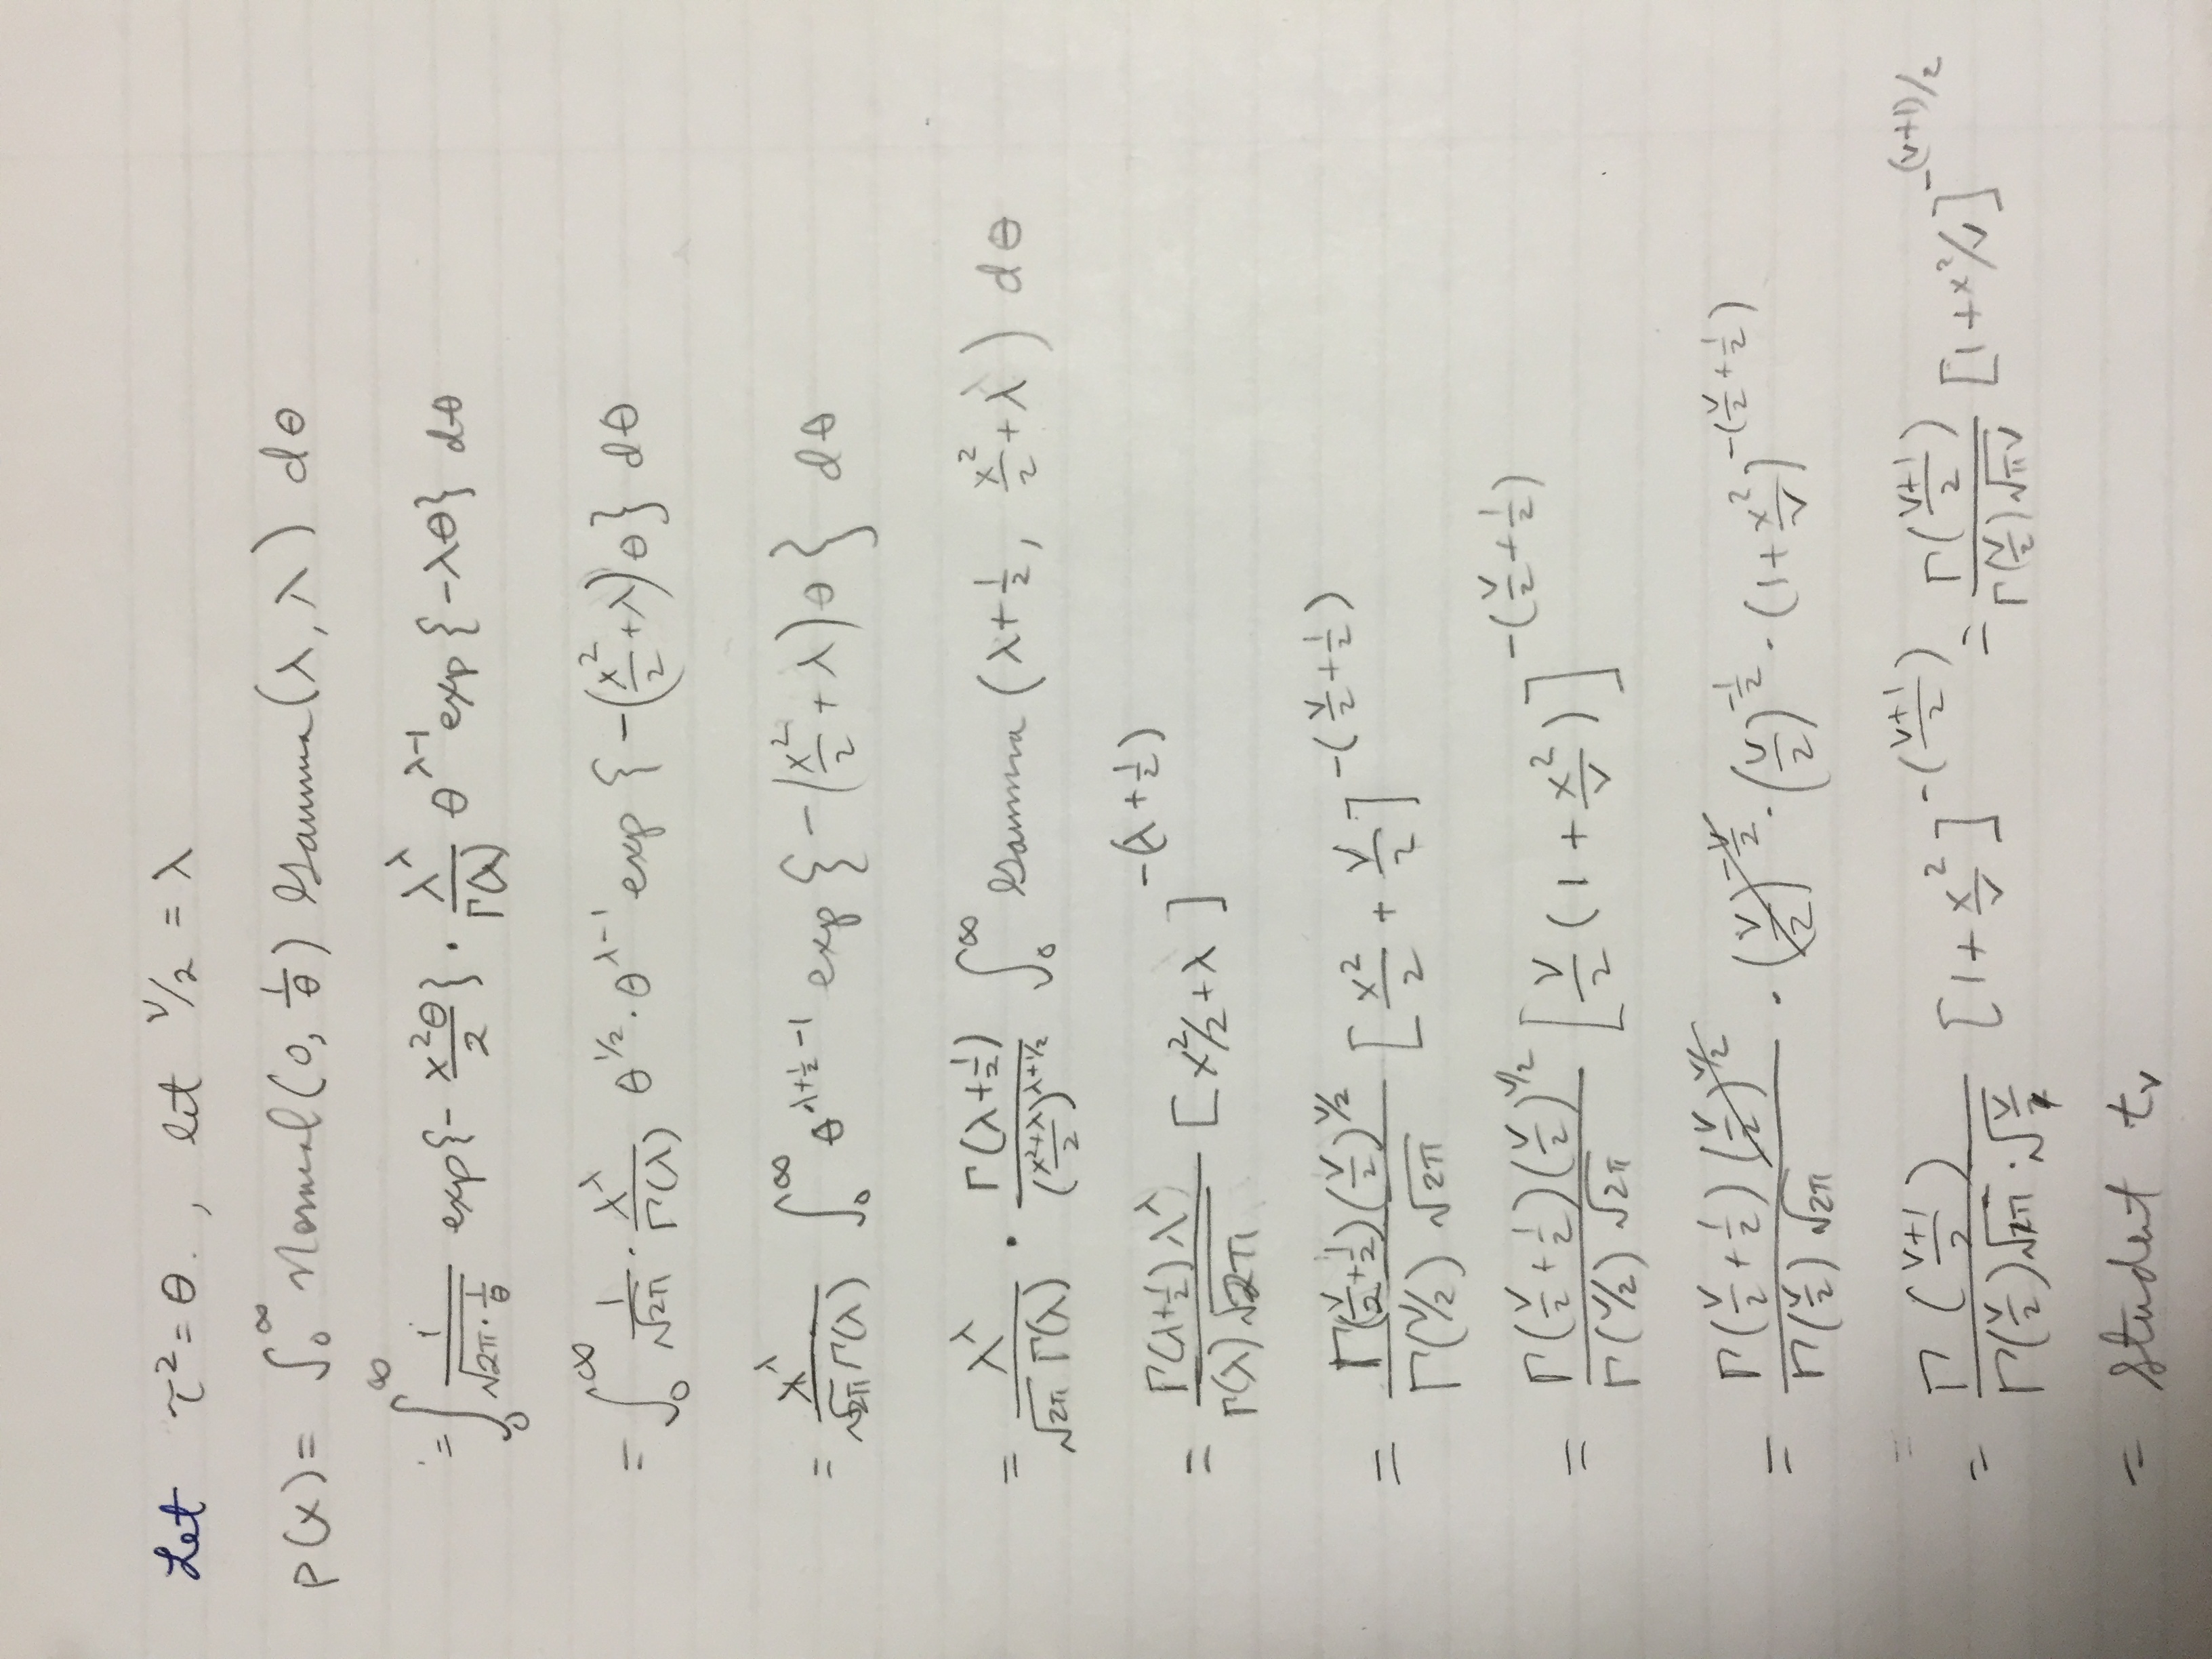 Let τ² = θ. , let ν/2 = λ
p(x) = ∫₀^∞ Normal(0, 1/θ) Gamma(λ, λ) dθ
= ∫₀^∞ 1/√(2π·1/θ) exp{-x²θ/2} · λ^λ/Γ(λ) θ^(λ-1) exp{-λθ} dθ
= ∫₀^∞ 1/√2π · λ^λ/Γ(λ) θ^(1/2) · θ^(λ-1) exp{-(x²/2 + λ)θ} dθ
= λ^λ/(√2π Γ(λ)) ∫₀^∞ θ^(λ+1/2-1) exp{-(x²/2 + λ)θ} dθ
= λ^λ/(√2π Γ(λ)) · Γ(λ+1/2)/((x²/2+λ)^(λ+1/2)) ∫₀^∞ Gamma(λ+1/2, x²/2 + λ) dθ
= Γ(λ+1/2) λ^λ/(Γ(λ) √2π) [x²/2 + λ]^-(λ+1/2)
= Γ(ν/2+1/2)(ν/2)^(ν/2)/(Γ(ν/2) √2π) [x²/2 + ν/2]^-(ν/2+1/2)
= Γ(ν/2+1/2)(ν/2)^(ν/2)/(Γ(ν/2) √2π) [ν/2 (1 + x²/ν)]^-(ν/2+1/2)
= Γ(ν/2+1/2)(ν/2)^(ν/2)/(Γ(ν/2) √2π) · (ν/2)^(-ν/2) · (ν/2)^(-1/2) · (1 + x²/ν)^-(ν/2+1/2)
= Γ(ν+1/2)/(Γ(ν/2) √2π · √ν/2) [1 + x²/ν]^-(ν+1/2) = Γ(ν+1/2)/(Γ(ν/2) √πν) [1 + x²/ν]^-(ν+1)/2
= Student tν